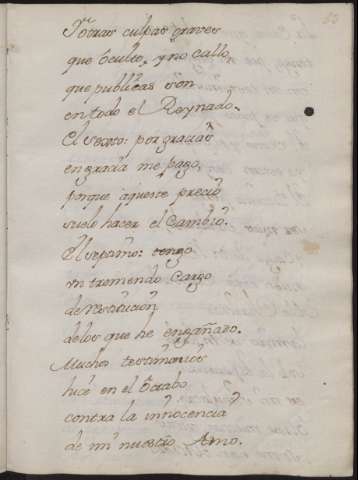 Y otras culpas graves
que oculto, y no callo,
que publicas son
en todo el Reynado.
El sexto: por gracias
en gracia me pago,
porque aqueste precio
suelo hacer el Cambio.
El septimo: tengo
un tremendo Cargo
de restitucion
de los que he engañado.
Muchos testimonios
hice en el Octabo
contra la innocencia
de mi nuestro Amo.